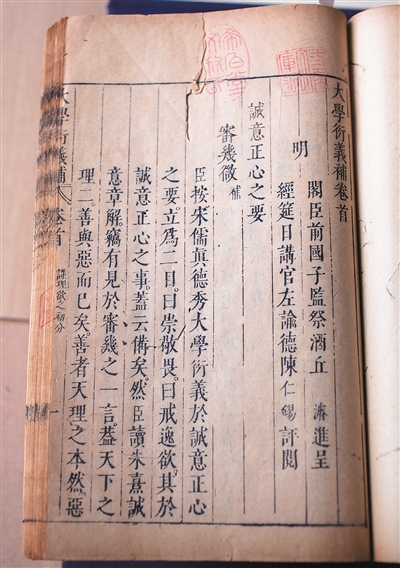 大學衍義補卷首
明
閣臣前國子監祭酒丘 濬進呈
經筵日講官左諭德陳仁錫評閱
誠意正心之要
審幾微補
臣按宋儒眞德秀大學衍義於誠意正心
之要立爲二目曰崇敬畏曰戒逸欲其於
誠意正心之事蓋云備矣然臣讀朱熹誠
意章解竊有見於審幾之一言葢天下之
理二善與惡而已矣善者天理之本然惡
謹理欲之初分
大學衍義補 卷首 一